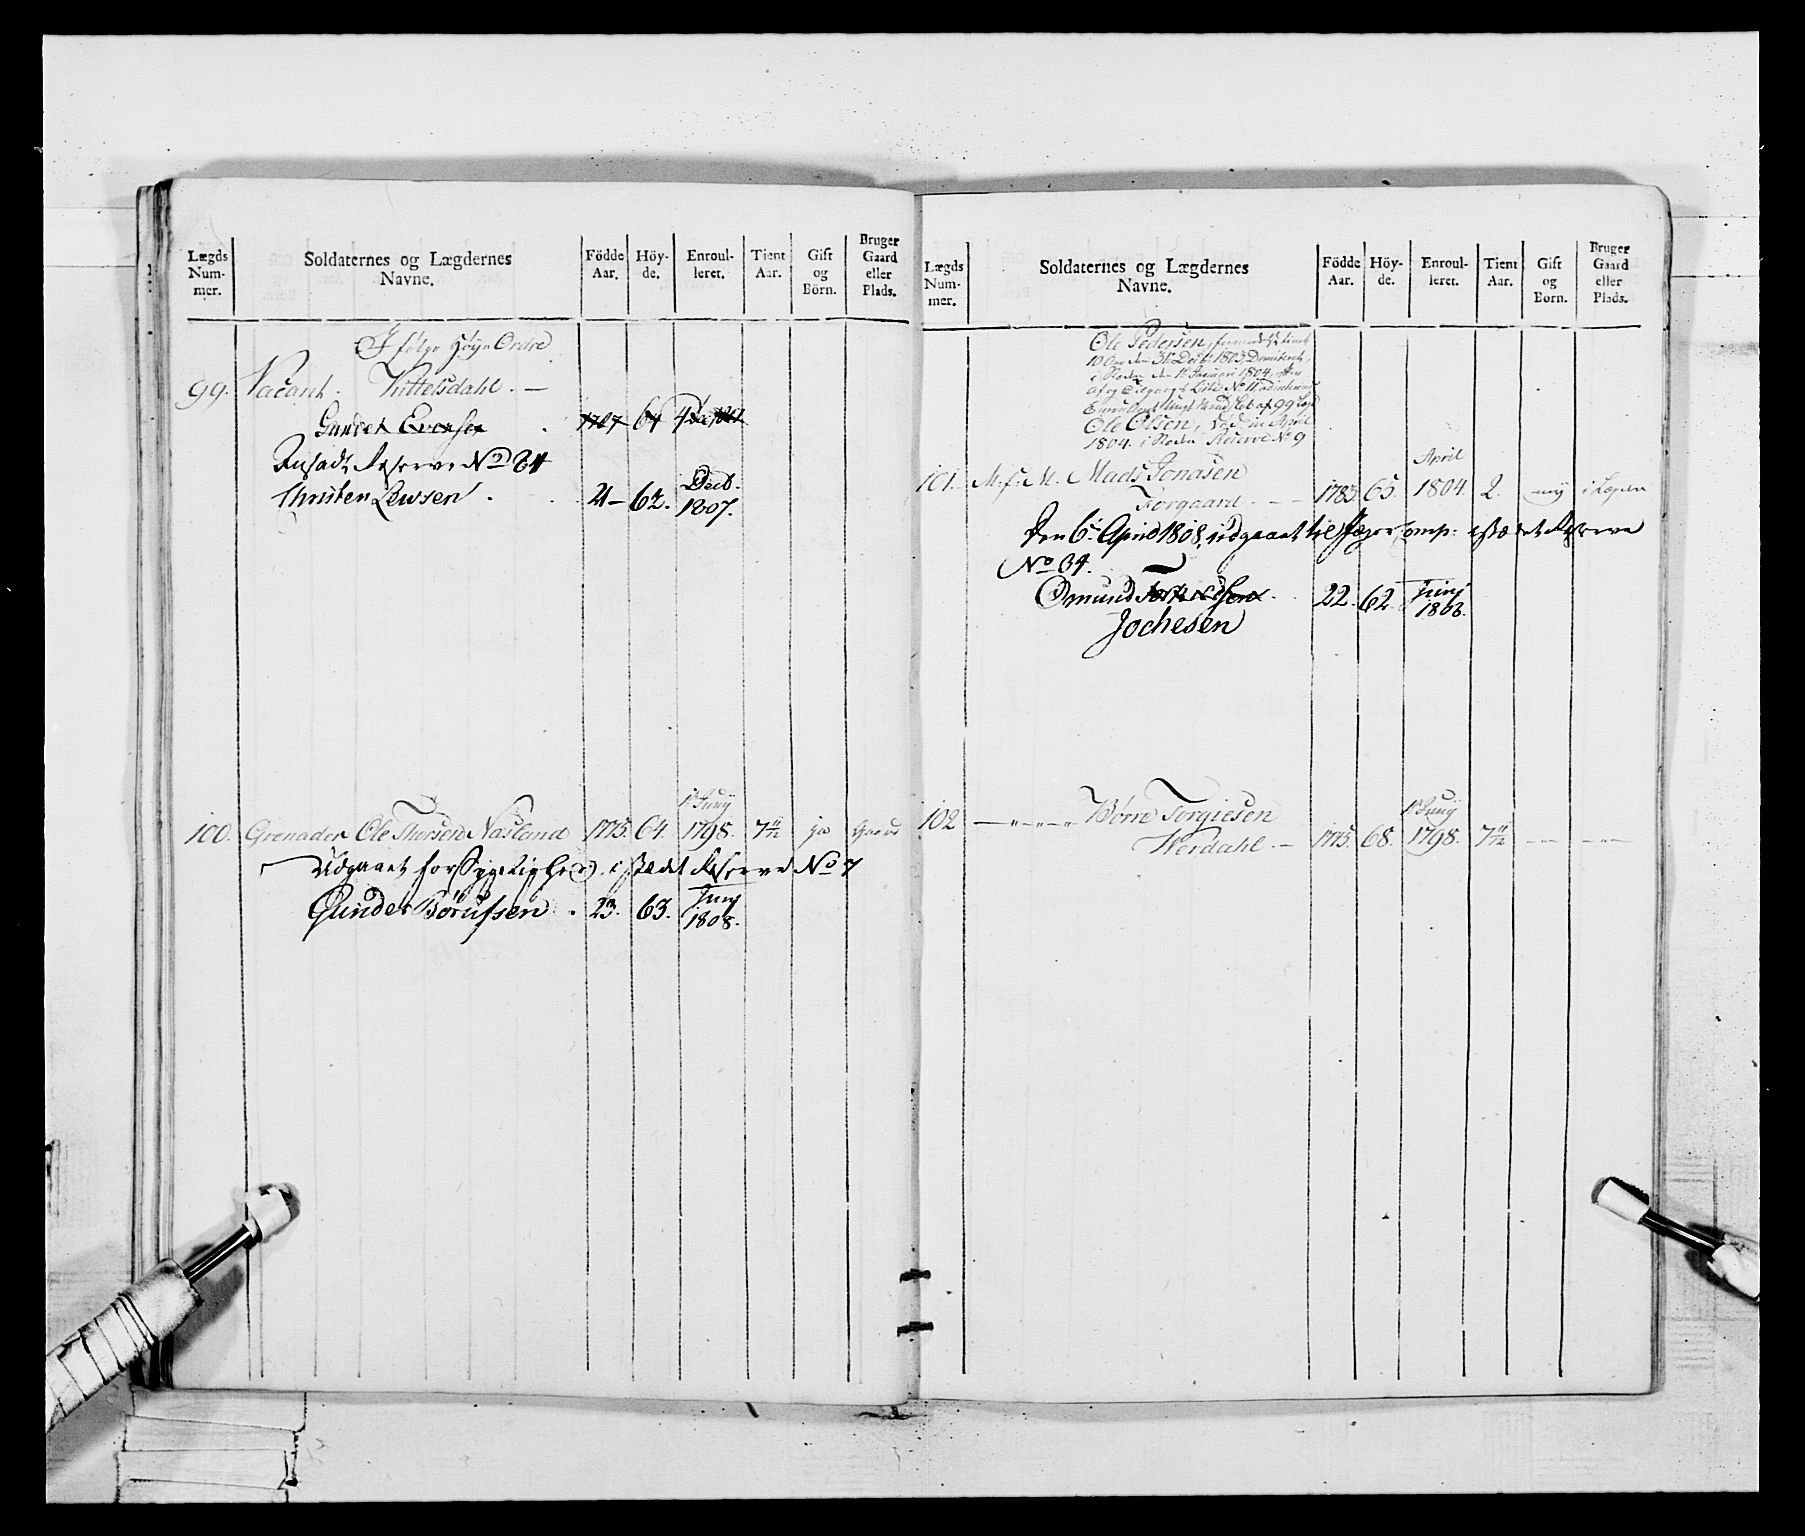 Lægds Num- mer.
Soldaternes og Lægdernes Navne.
Födde Aar.
Höy- de.
Enroul- leret.
Tient Aar.
Gift og Börn.
Bruger Gaard eller Plads.
I følge Høye Ordre
99. Vacant. Kittelsdahl. —
Gunder Evensen 1787 64
Ansadt Reserve No 24
Christen Lewsen 21 — 62. Decb. 1807.
1 Juny
100. Grenader Ole Thorsen Nasland 1775. 64. 1798. 7 11/12 ja Gaard
Udgaaet for Sygelighed, i stædet Reserve No 7
Gunder Börufsen 23. 63. Juny 1808.
Lægds Num- mer.
Soldaternes og Lægdernes Navne.
Födde Aar.
Höy- de.
Enroul- leret.
Tient Aar.
Gift og Börn.
Bruger Gaard eller Plads.
Ole Pedersen,
10 Aar den 31 Decbr 1803, Demiteret
i Steden den 1 Januari 1804, efter
afg No
af 99 Lægd
Ole Olsen, død in April
1804. i Steden Reserve No 9
101. M. f. M. Mads Jonasen April
Torgaard — 1783. 65. 1804. 2. ney i Lægden
Den 6 April 1808, udgaaet til Jæger Comp: istædet Reserve
No 34.
Omund 22. 62 Juny 1808.
Jochesen
102 — „ — „ — Börre Torgiesen 1 Juny
Werdahl. — 1775. 68. 1798. 7 11/12 — „ — — „ —